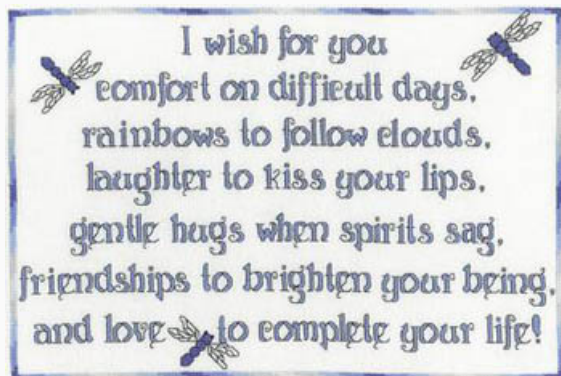 I wish for you
comfort on difficult days,
rainbows to follow clouds,
laughter to kiss your lips,
gentle hugs when spirits sag,
friendships to brighten your being,
and love to complete your life!